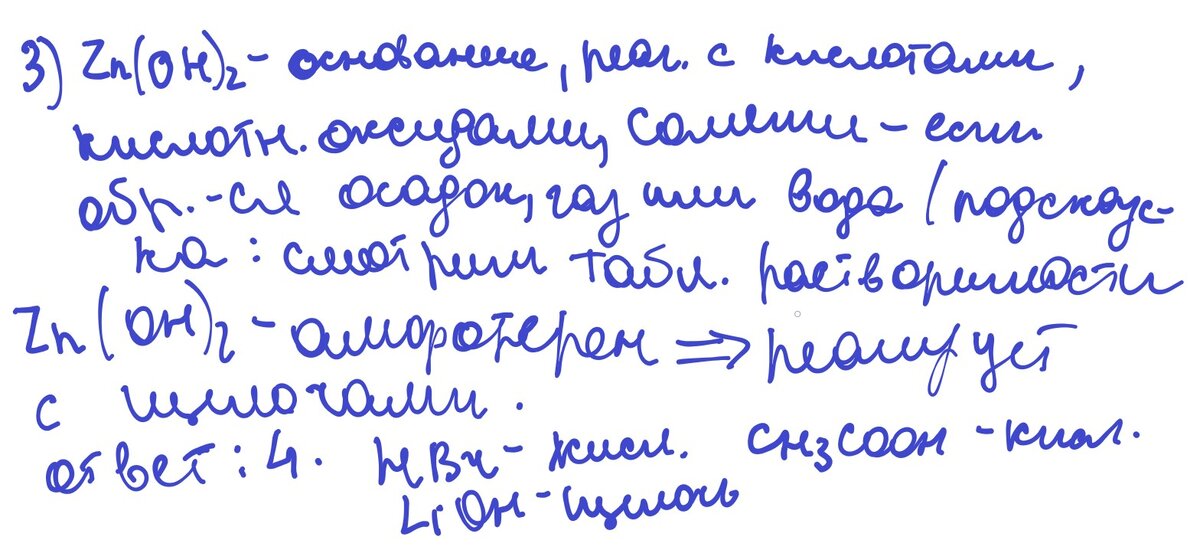 3) Zn(OH)₂ - основание, реаг. с кислотами,
кислотн. оксидами, солями - если
обр.-ся осадок, газ или вода (подсказ-
ка: смотрим табл. растворимости
Zn(OH)₂ - амфотерен ⇒ реагирует
с щелочами.
ответ: 4. HBr - кисл. CH₃COOH - кисл.
LiOH - щелочь